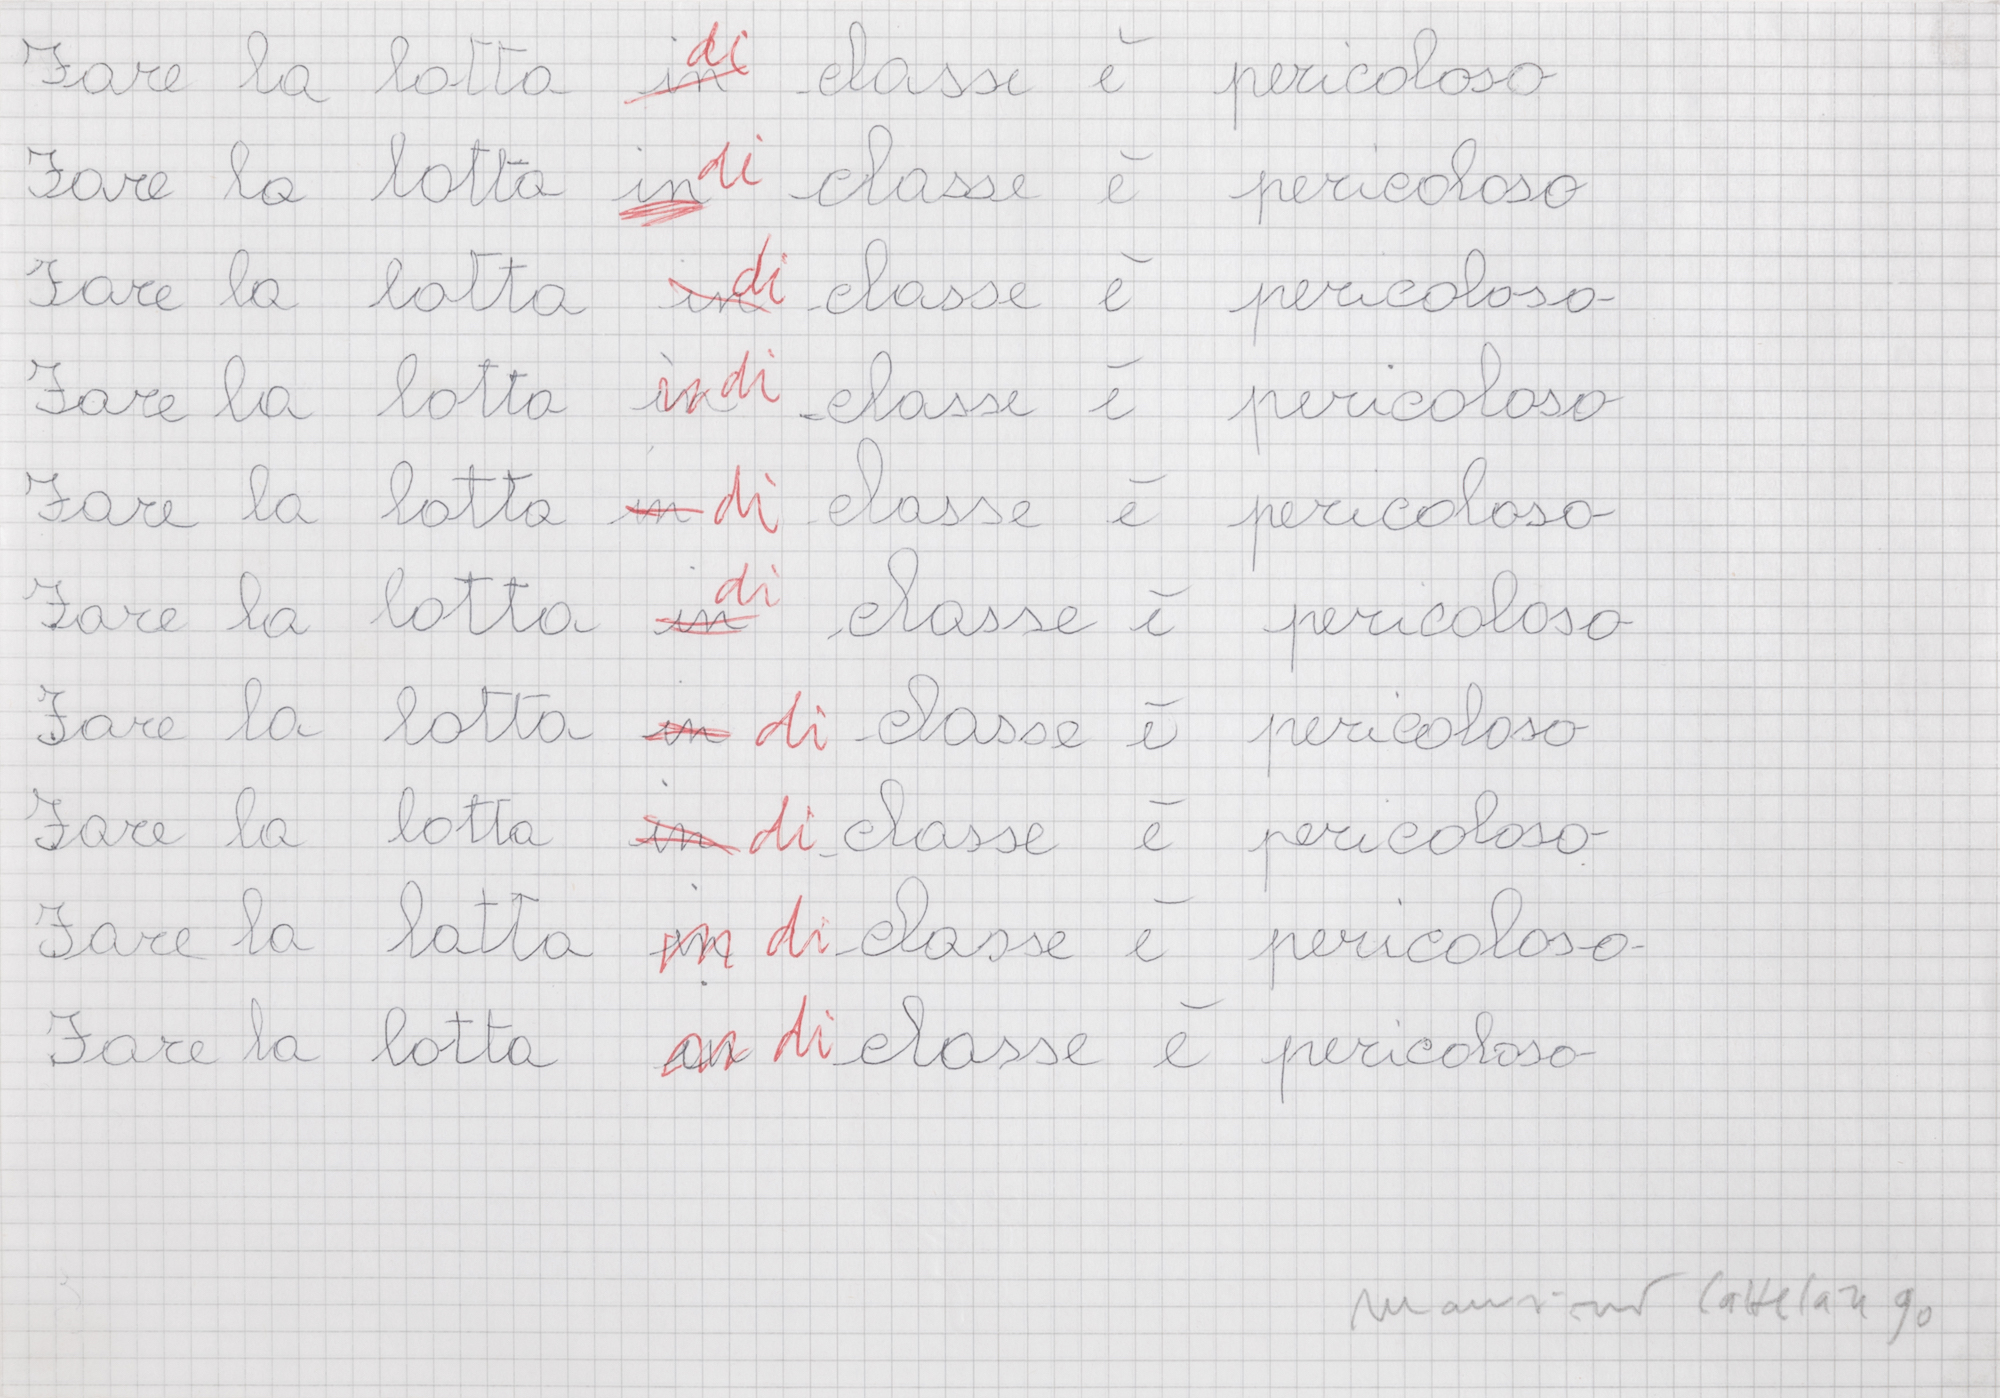 Fare la lotta in di classe è pericoloso
Fare la lotta in di classe è pericoloso
Fare la lotta in di classe è pericoloso
Fare la lotta in di classe è pericoloso
Fare la lotta in di classe è pericoloso
Fare la lotta in di classe è pericoloso
Fare la lotta in di classe è pericoloso
Fare la lotta in di classe è pericoloso
Fare la latta in di classe è pericoloso
Fare la lotta in di classe è pericoloso
Maurizio Cattelan 90